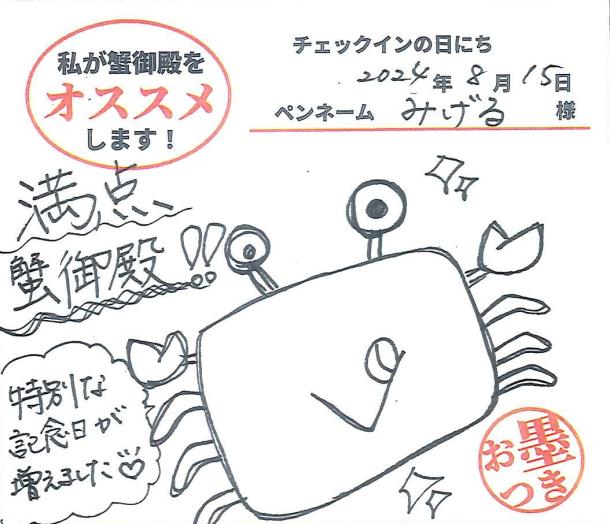 私が蟹御殿を
オススメ
します！
チェックインの日にち
2024年8月15日
ペンネーム みげる 様
満点
蟹御殿!!
特別な
記念日が
増えました♡
お墨
つき